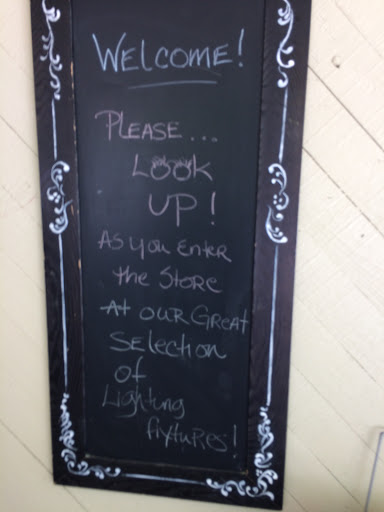 WELCOME!
PLEASE...
LOOK
UP!
AS YOU ENTER
the STORE
At OUR GREAT
SELECTION
of
Lighting
fixtures!